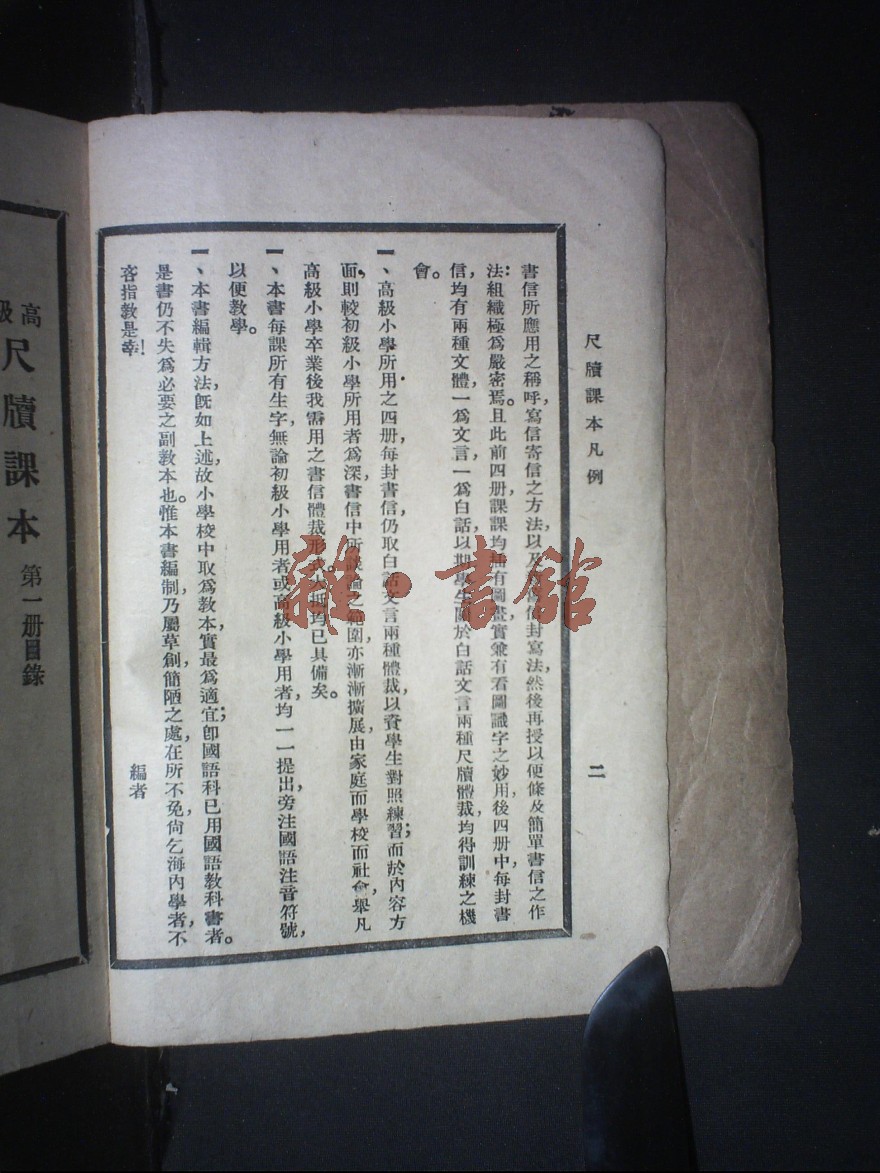 尺牘課本凡例
二
書信所應用之稱呼，寫信寄信之方法，以及信封寫法，然後再授以便條及簡單書信之作
法：組織極爲嚴密焉。且此前四册，課課均插有圖畫，實兼有看圖識字之妙用，後四册中，每封書
信，均有兩種文體，一爲文言，一爲白話，以期學生關於白話文言兩種尺牘體裁，均得訓練之機
會。
一、高級小學所用之四册，每封書信，仍取白話文言兩種體裁，以資學生對照練習；而於內容方
面，則較初級小學所用者爲深，書信中所談論之範圍，亦漸漸擴展，由家庭而學校而社會，舉凡
高級小學卒業後我需用之書信體裁形式，大抵均已具備矣。
一、本書每課所有生字，無論初級小學用者或高級小學用者，均一一提出，旁注國語注音符號，
以便教學。
一、本書編輯方法，旣如上述，故小學校中取爲教本，實最爲適宜；卽國語科已用國語教科書者。
是書仍不失爲必要之副教本也。惟本書編制，乃屬草創，簡陋之處，在所不免，尙乞海內學者，不
吝指教是幸！
編者
高級
尺牘課本 第一册目錄
雜·書館